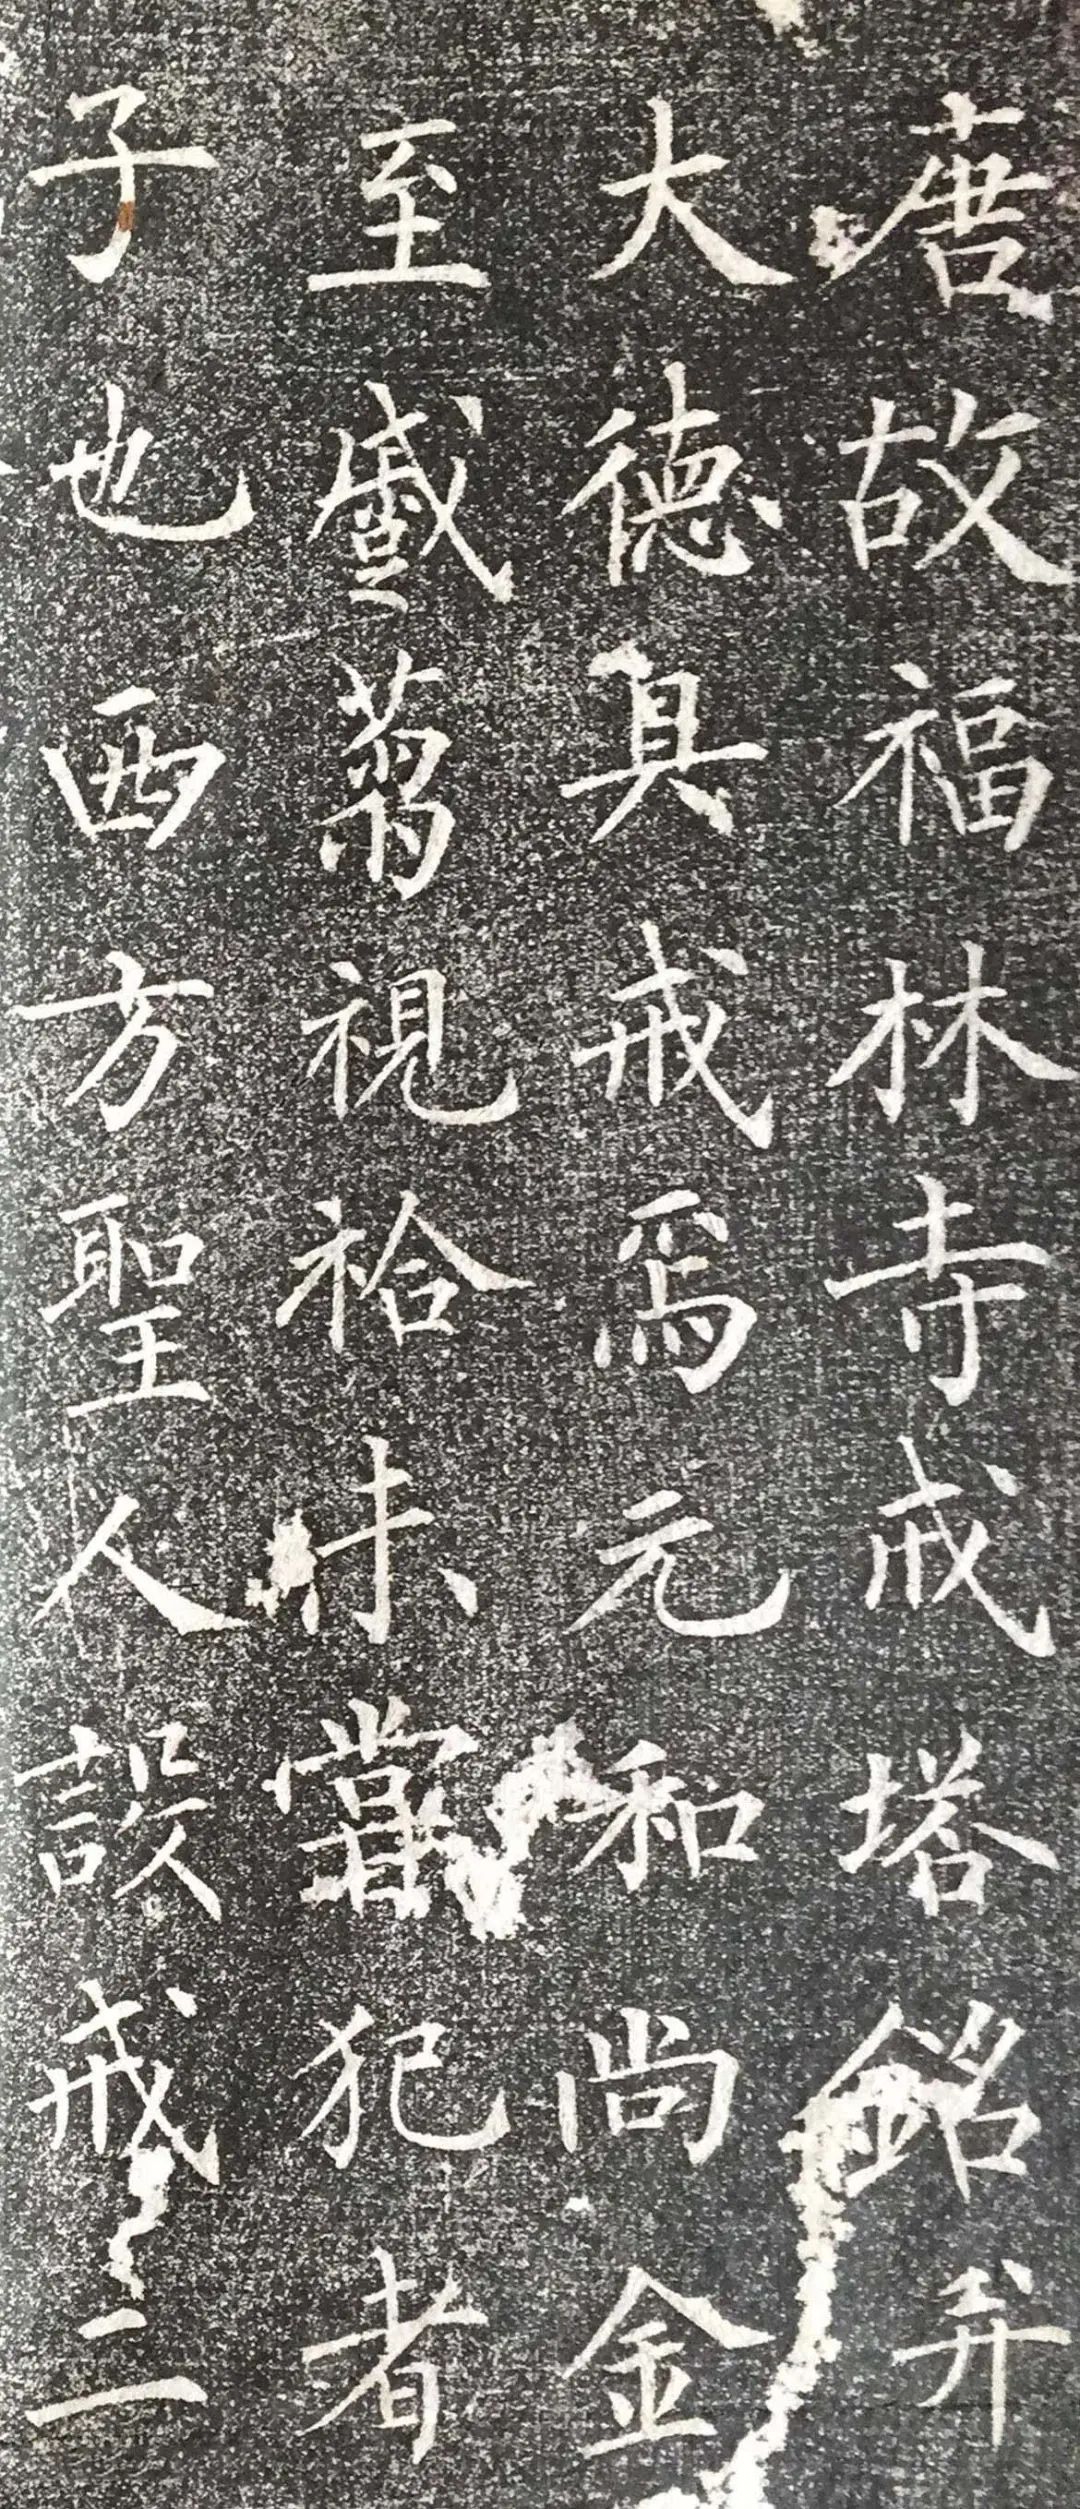 唐故福林寺戒塔銘并
大德具戒焉元和尚金
至戲蒭視祫未嘗犯者
子也西方聖人設戒二